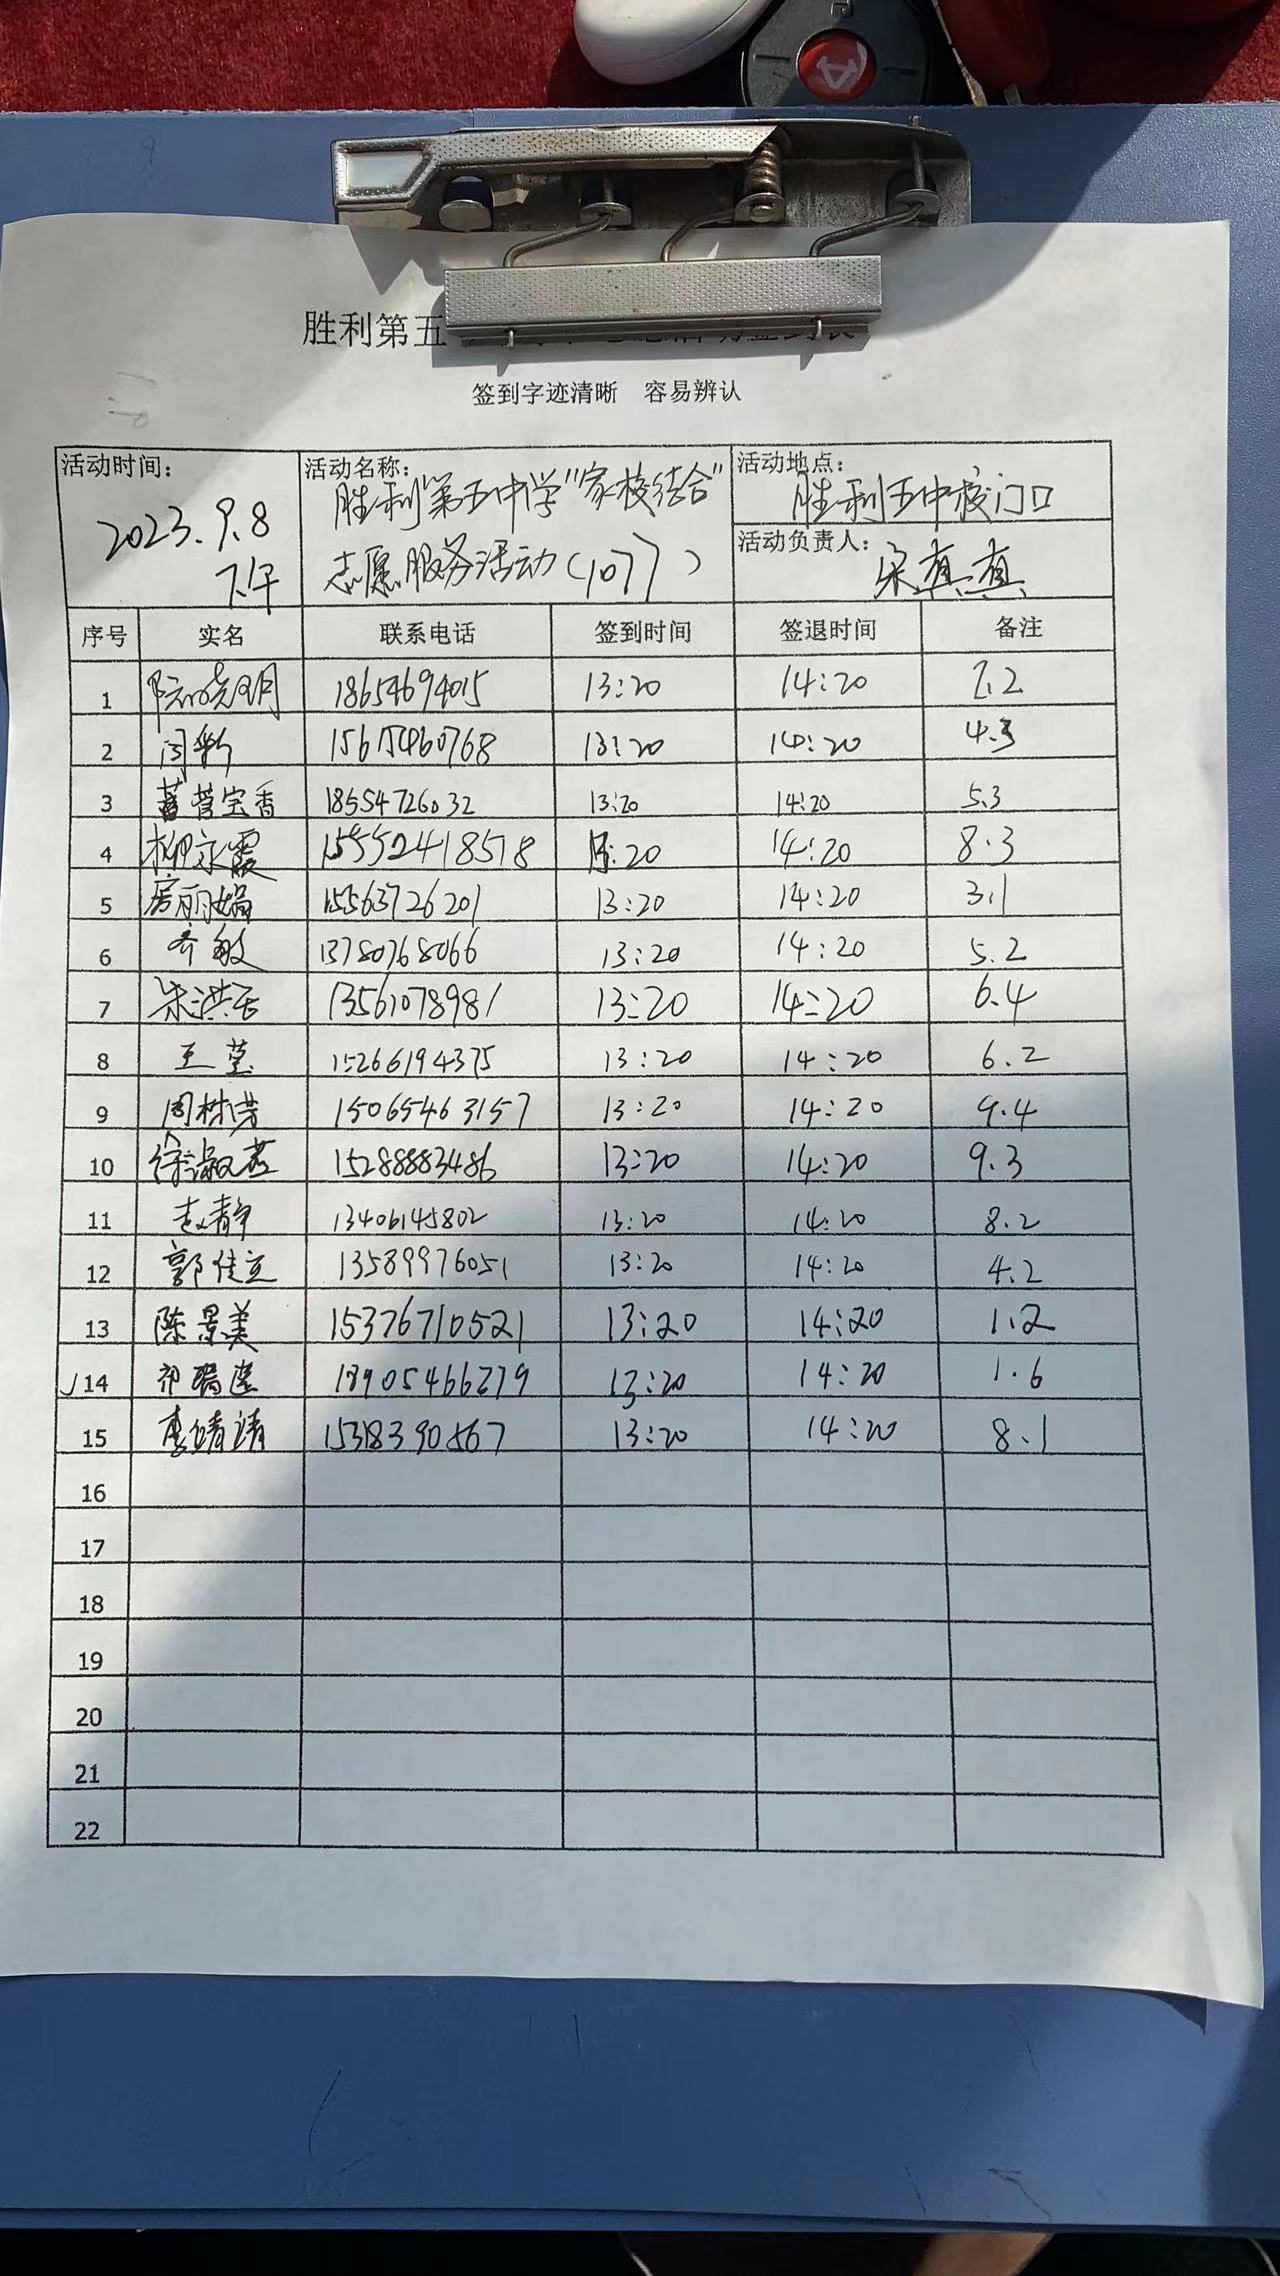 胜利第五
签到字迹清晰 容易辨认
活动时间: 2023.9.8 下午
活动名称: 胜利第五中学"家校结合"
志愿服务活动(107)
活动地点: 胜利五中校门口
活动负责人: 宋真真
序号 实名 联系电话 签到时间 签退时间 备注
1 18654694015 13:20 14:20 7.2
2 闫彩 15615460768 13:20 14:20 4.3
3 营宝香 18554726032 13:20 14:20 5.3
4 柳永霞 15552418578 13:20 14:20 8.3
5 房丽娟 15563726201 13:20 14:20 3.1
6 齐敏 13780768066 13:20 14:20 5.2
7 宋洪 13561078981 13:20 14:20 6.4
8 王莹 15266194375 13:20 14:20 6.2
9 周林芳 15065463157 13:20 14:20 9.4
10 徐淑燕 15288883486 13:20 14:20 9.3
11 赵静 13406145802 13:20 14:20 8.2
12 郭佳立 13589976051 13:20 14:20 4.2
13 陈景美 15376710521 13:20 14:20 1.2
14 祁瑞莲 18905466279 13:20 14:20 1.6
15 李靖靖 15318390567 13:20 14:20 8.1
16
17
18
19
20
21
22